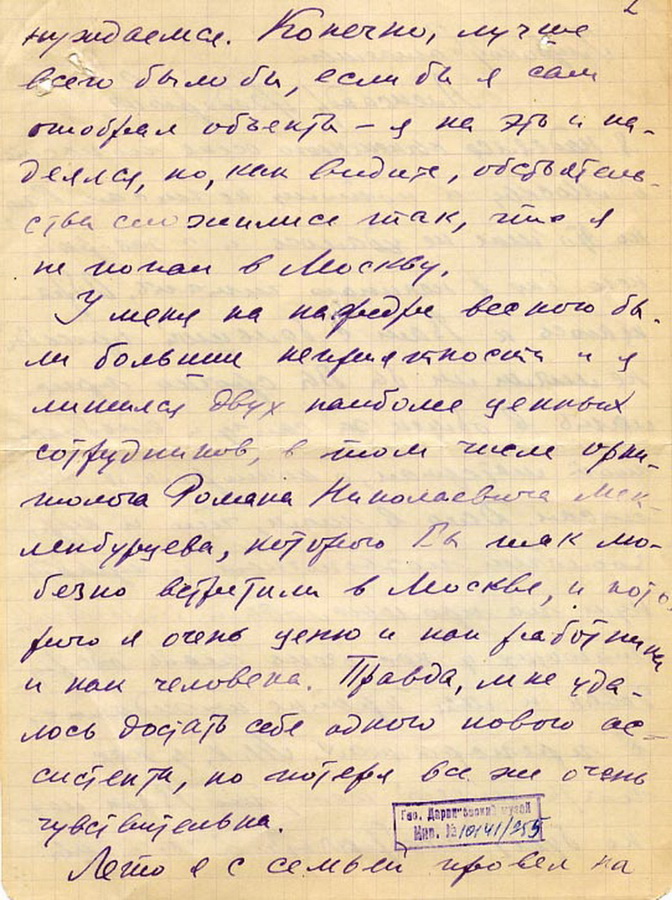 2
нуждаемся. Конечно, лучше
всего было бы, если бы я сам
отобрал объекты – я на это и на-
деялся, но, как видите, обстоятель-
ства сложились так, что я
не попал в Москву.
У меня на кафедре весною бы-
ли большие неприятности и я
лишился двух наиболее ценных
сотрудников, в том числе орни-
толога Романа Николаевича Мек-
ленбурцева, которого Вы так лю-
безно встретили в Москве, и кото-
рого я очень ценю и как работника
и как человека. Правда, мне уда-
лось достать себе одного нового ас-
систента, но потеря все же очень
чувствительна.
Гос. Дарвиновский музей
Инв. № 10141/955
Лето я с семьей провел на